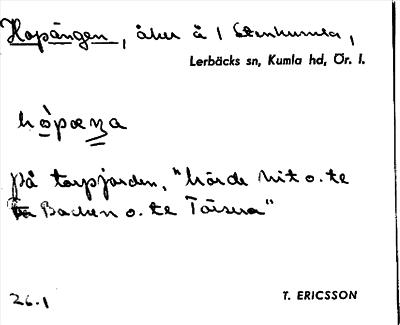 Hopängen, åker å 1 Stenkumla,
Lerbäcks sn, Kumla hd, Ör. l.
hò̱pæŋa
på torpjorden, "hörde hit o. te
Backen o. te Töisera"
26.1
T. ERICSSON